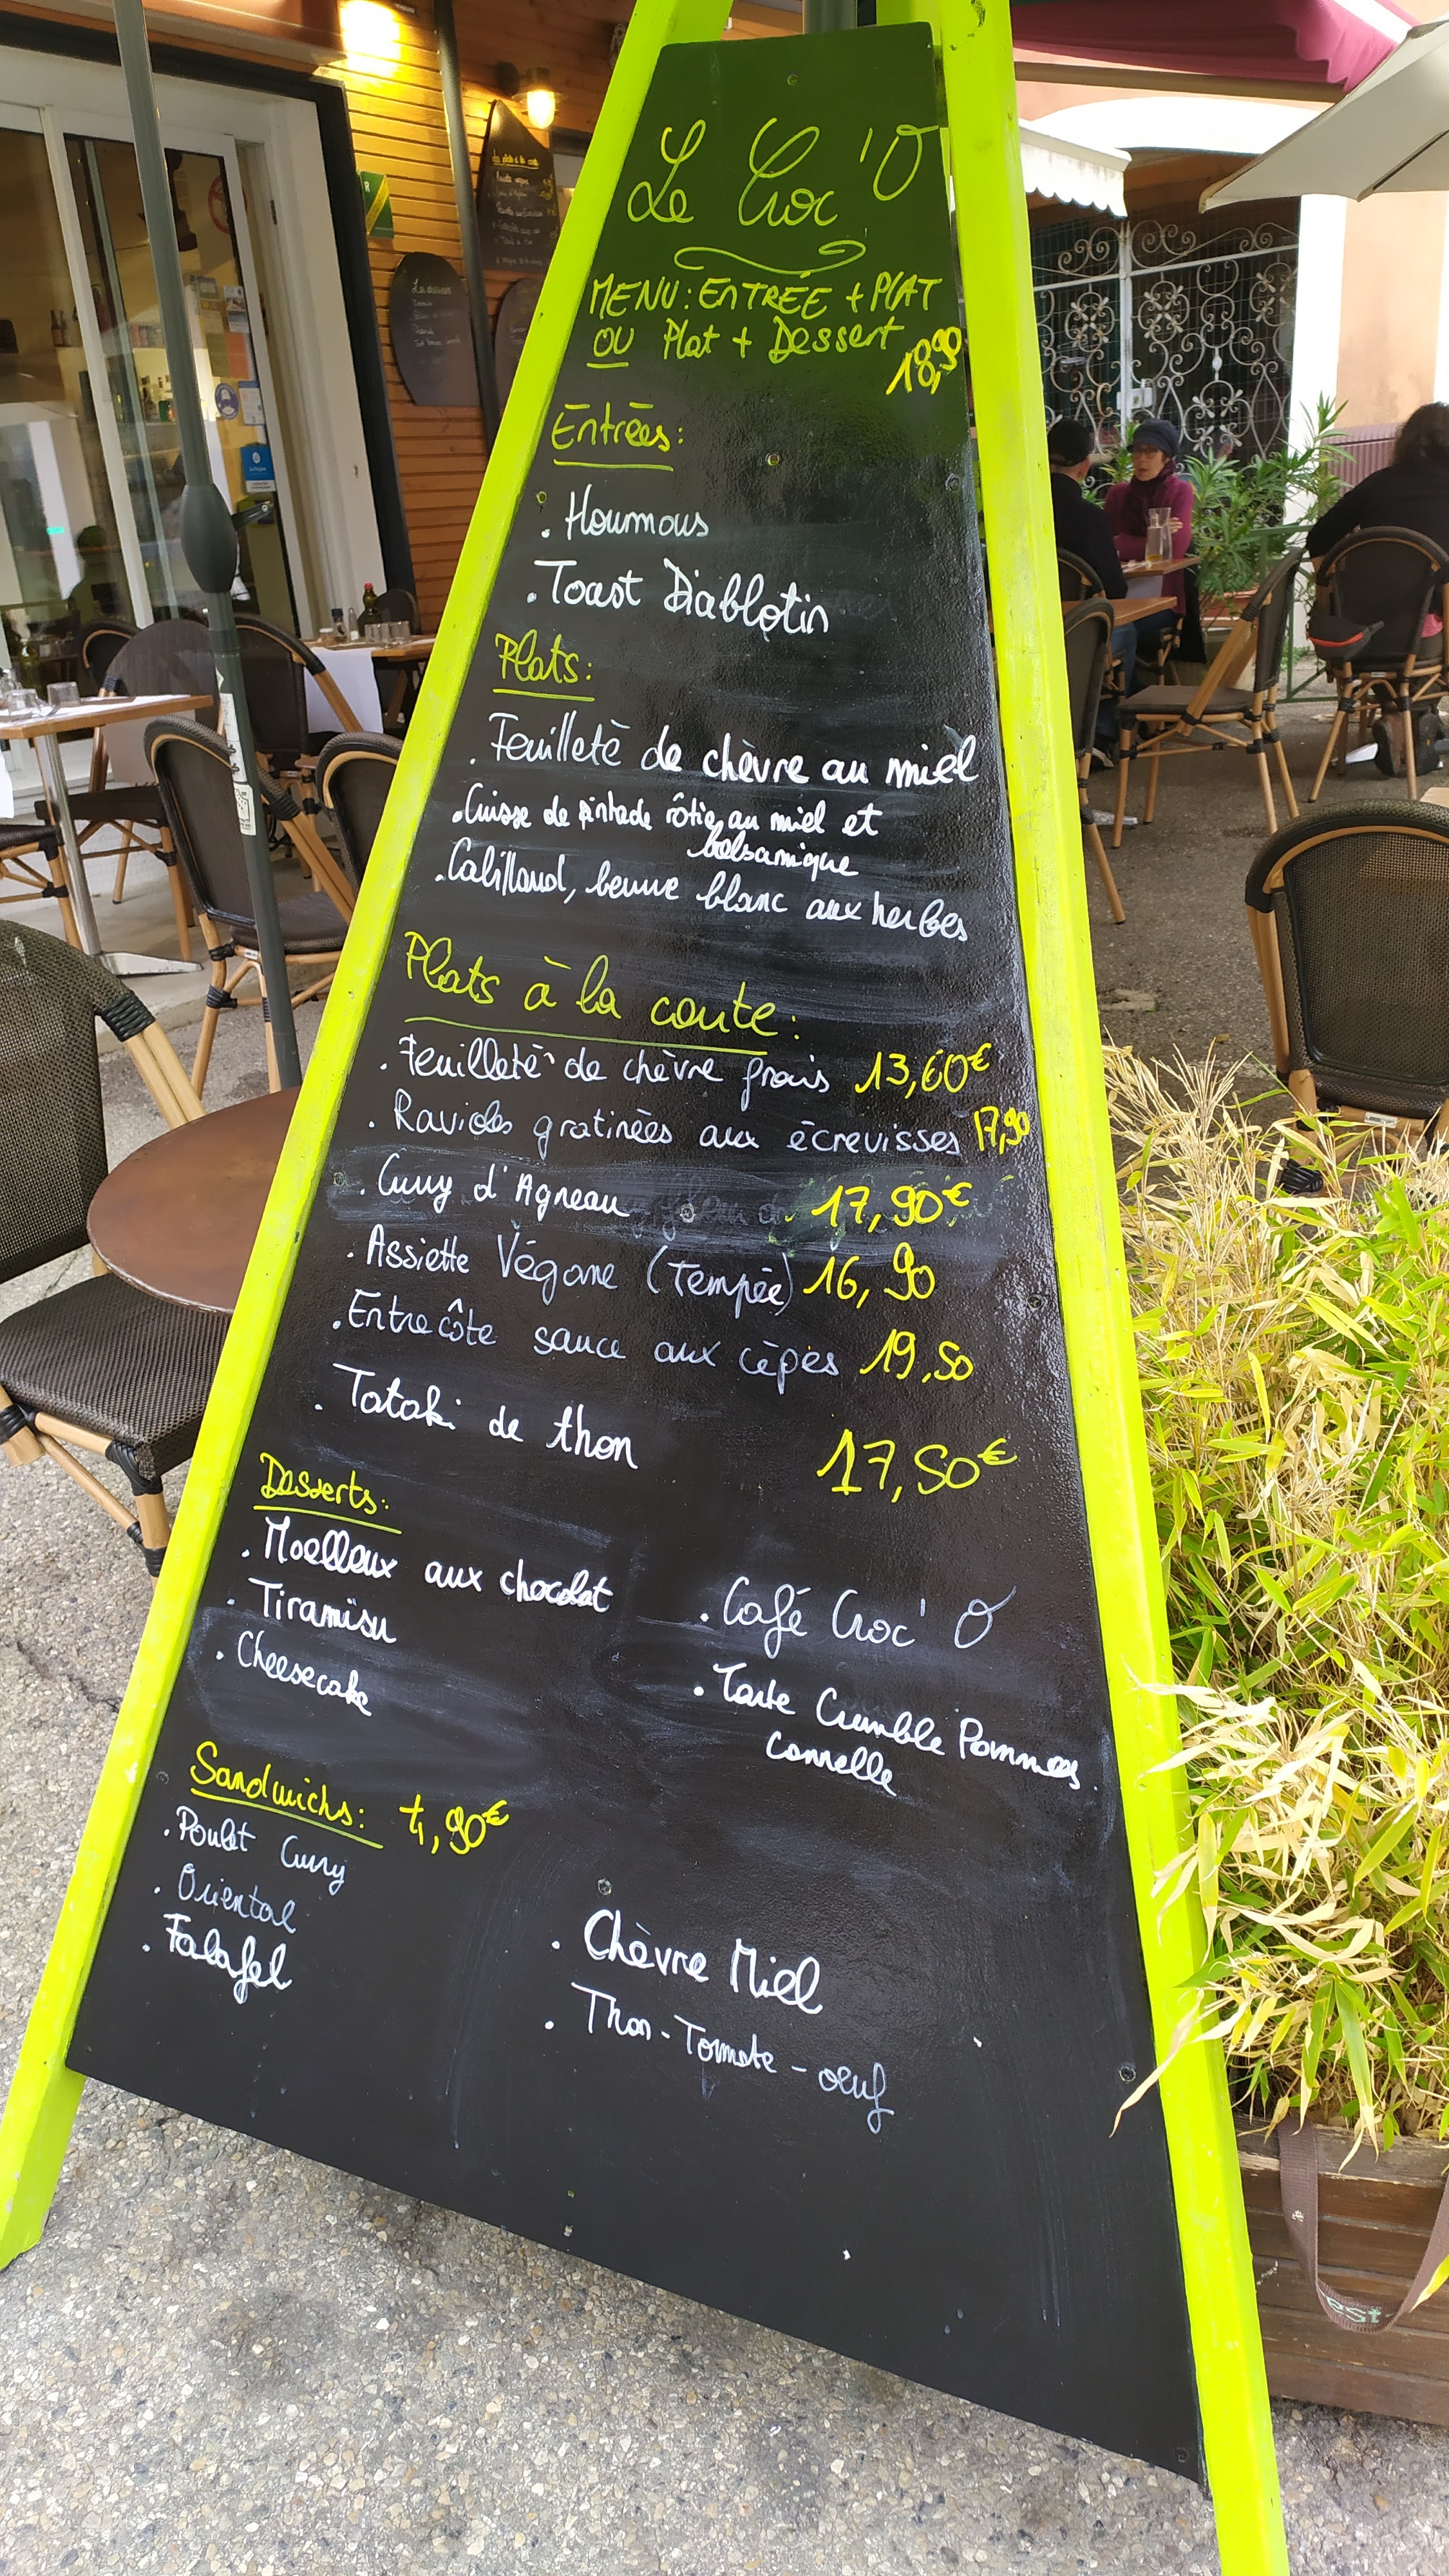 Le Croc'O
MENU: ENTRÉE + PLAT
OU Plat + Dessert
18,90
Entrées:
. Houmous
. Toast Diablotin
Plats:
. Feuilleté de chèvre au miel
. Cuisse de pintade rôtie au miel et
balsamique
. Cabillaud, beurre blanc aux herbes
Plats à la carte:
. Feuilleté de chèvre frais 13,60€
. Ravioles gratinées aux écrevisses 17,90
. Curry d'Agneau 17,90€
. Assiette Végane (Tempée) 16,90
. Entrecôte sauce aux cèpes 19,50
. Tataki de thon 17,50€
Desserts:
. Moelleux aux chocolat
. Tiramisu
. Cheesecake
. Café Croc'O
. Tarte Crumble Pommes
Cannelle
Sandwichs: 4,90€
. Poulet Curry
. Oriental
. Falafel
. Chèvre Miel
. Thon-Tomate-oeuf